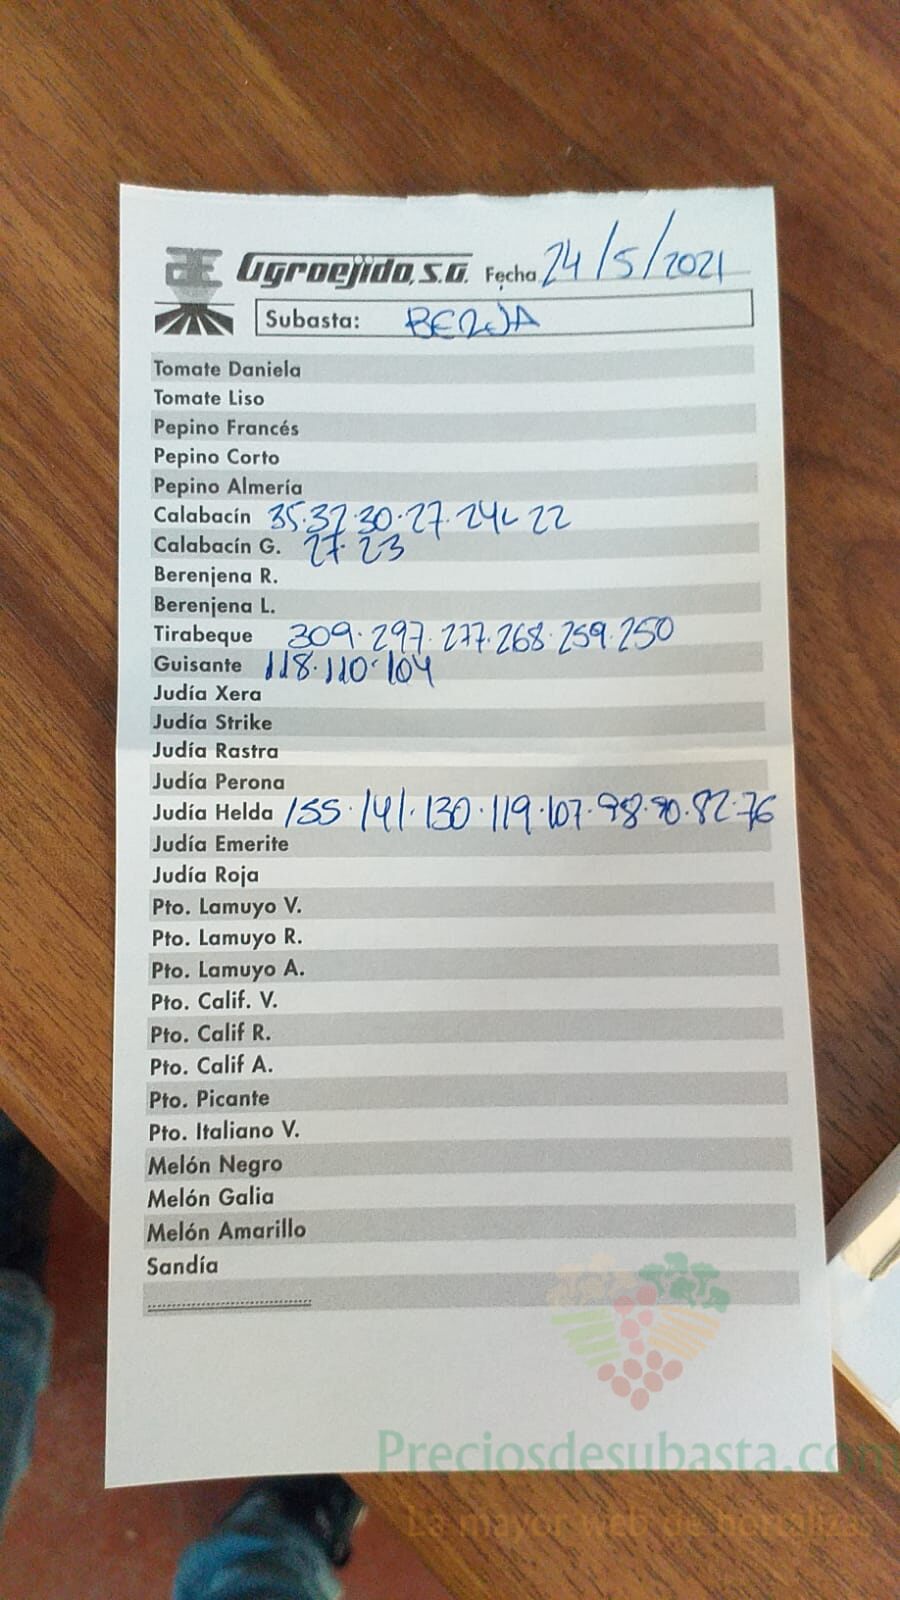 Agroejido, S.A. Fecha 24/5/2021
Subasta: BERJA
Tomate Daniela
Tomate Liso
Pepino Francés
Pepino Corto
Pepino Almería
Calabacín 35.32.30.27.24.22
Calabacín G. 27.23
Berenjena R.
Berenjena L.
Tirabeque 309.297.277.268.259.250
Guisante 118.110.104
Judía Xera
Judía Strike
Judía Rastra
Judía Perona
Judía Helda 155.141.130.119.107.98.90.82.76
Judía Emerite
Judía Roja
Pto. Lamuyo V.
Pto. Lamuyo R.
Pto. Lamuyo A.
Pto. Calif. V.
Pto. Calif R.
Pto. Calif A.
Pto. Picante
Pto. Italiano V.
Melón Negro
Melón Galia
Melón Amarillo
Sandía
Preciosdesubasta.com
La mayor web de hortalizas